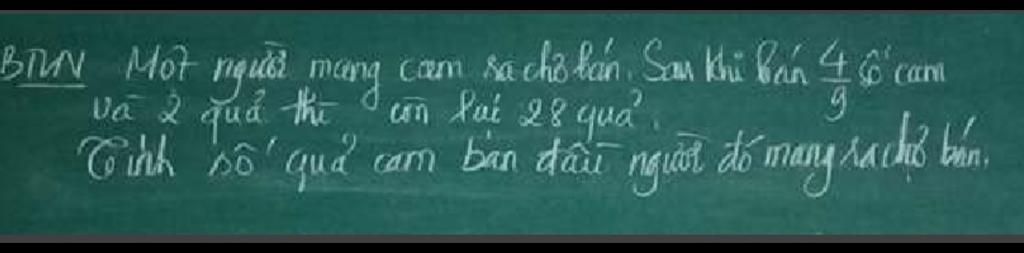 BTVN Một người mang cam ra chợ bán. Sau khi bán 4/9 số cam
và 2 quả thì còn lại 28 quả.
Tính số quả cam ban đầu người đó mang ra chợ bán.